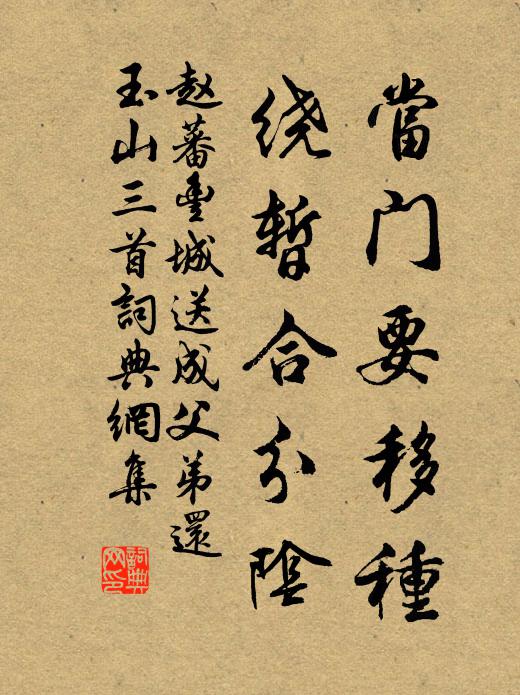 當门要移種
绕暂合分陰
赵蕃豊城送成父弟還
玉山三首詞典網集
詞典
网印